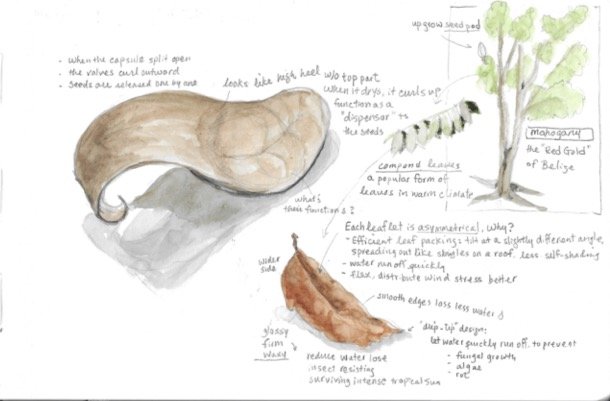 up grow seed pod
- when the capsule split open
- the valves curl outward
- seeds are released one by one
looks like high heel w/o top part
when it drys, it curls up
function as a
"dispensor" to
the seeds
mahogany
the "Red Gold"
of Belize
compond leaves
a popular form of
leaves in warm climate
what's
their functions?
Each leaflet is asymmetrical, why?
- Efficient leaf packing: tilt at a slightly different angle,
spreading out like shigles on a roof, less self-shading
- water run off quickly
- flex, distrbute wind stress better
wider
side
smooth edges loss less water
"drip-tip" design:
let water quickly run off, to prevent
- fungal growth
- algae
- rot
glossy
firm
waxy
reduce water lose
insect resisting
surviving intense tropical sun